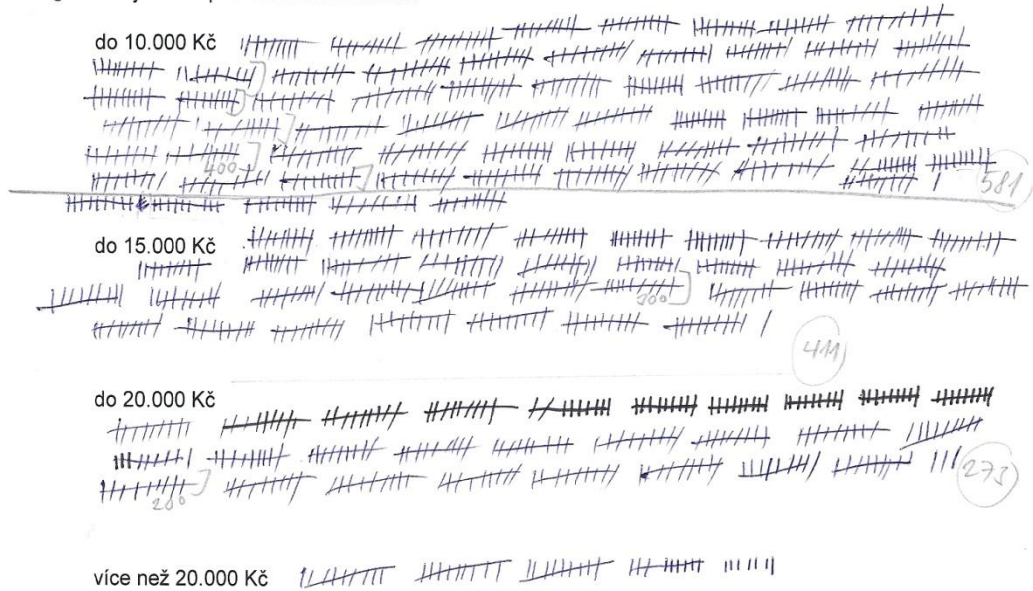 do 10.000 Kč
400
581
do 15.000 Kč
300
411
do 20.000 Kč
200
273
více než 20.000 Kč